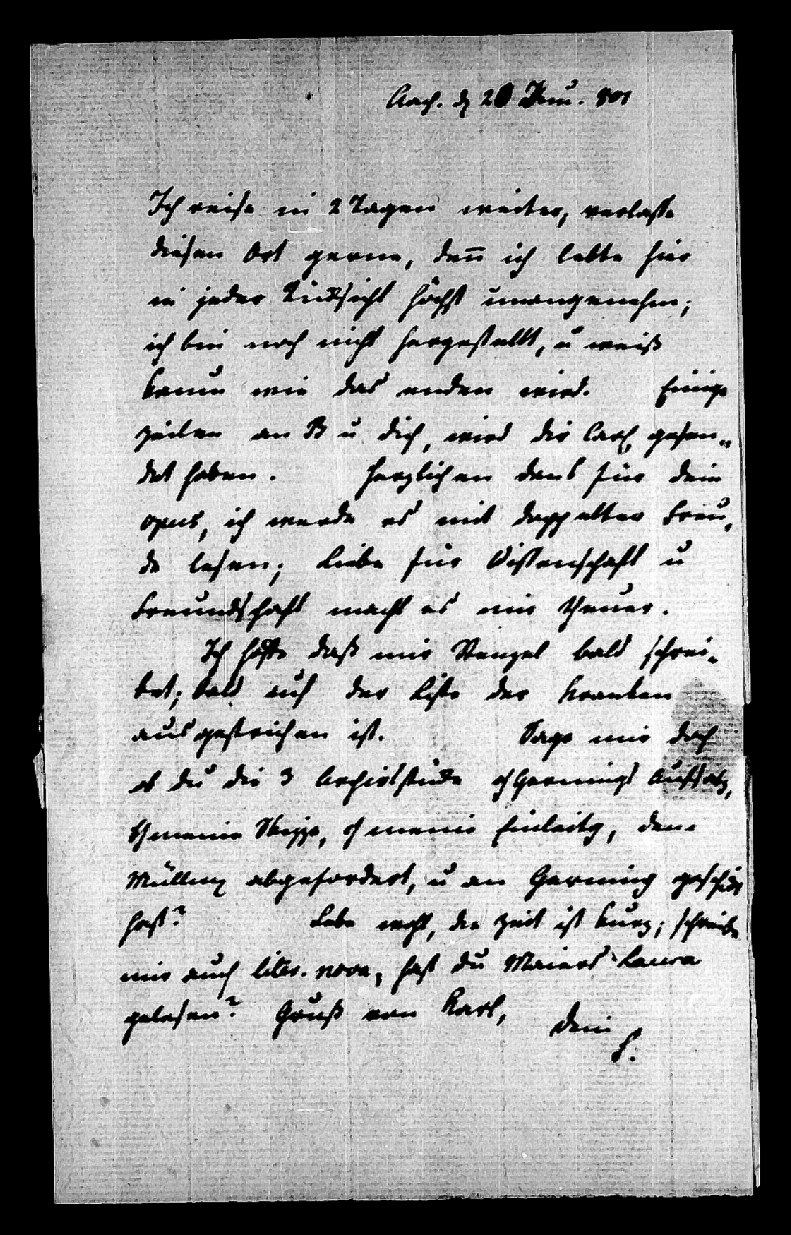 Aach. d 20 Jenu. 801
Ich reise in 2 Tagen weiter, verlasse
diesen Ort gerne, deñ ich lebte hier
in jeder Rüksicht höchst unangenehm;
ich bin noch nicht hergestellt, u weiß
kaum wie das enden wird. Einige
Zeilen an B u dich, wird dir Carl gesen„
det haben. Herzlichen dank für dein
opus, ich werde es mit doppelter Freu„
de lesen; Liebe für Wissenschaft u
Freundschaft macht es mir theuer.
Ich hoffe daß mir Stenzel bald schrei„
bet; bald auf der Liste der Kranken
ausgestrichen ist. Sage mir doch
ob du die 3 Archivstüke Gernings Aufsatz,
meine Skizze, meine Einleitg, den
Müllern abgefordert, u an Gerning geschikt
hast? Lebe wohl, die Zeit ist kurz; schreibe
mir auch liter. nova, hast du Maiers Laura
gelesen? Gruß von Karl,
dein